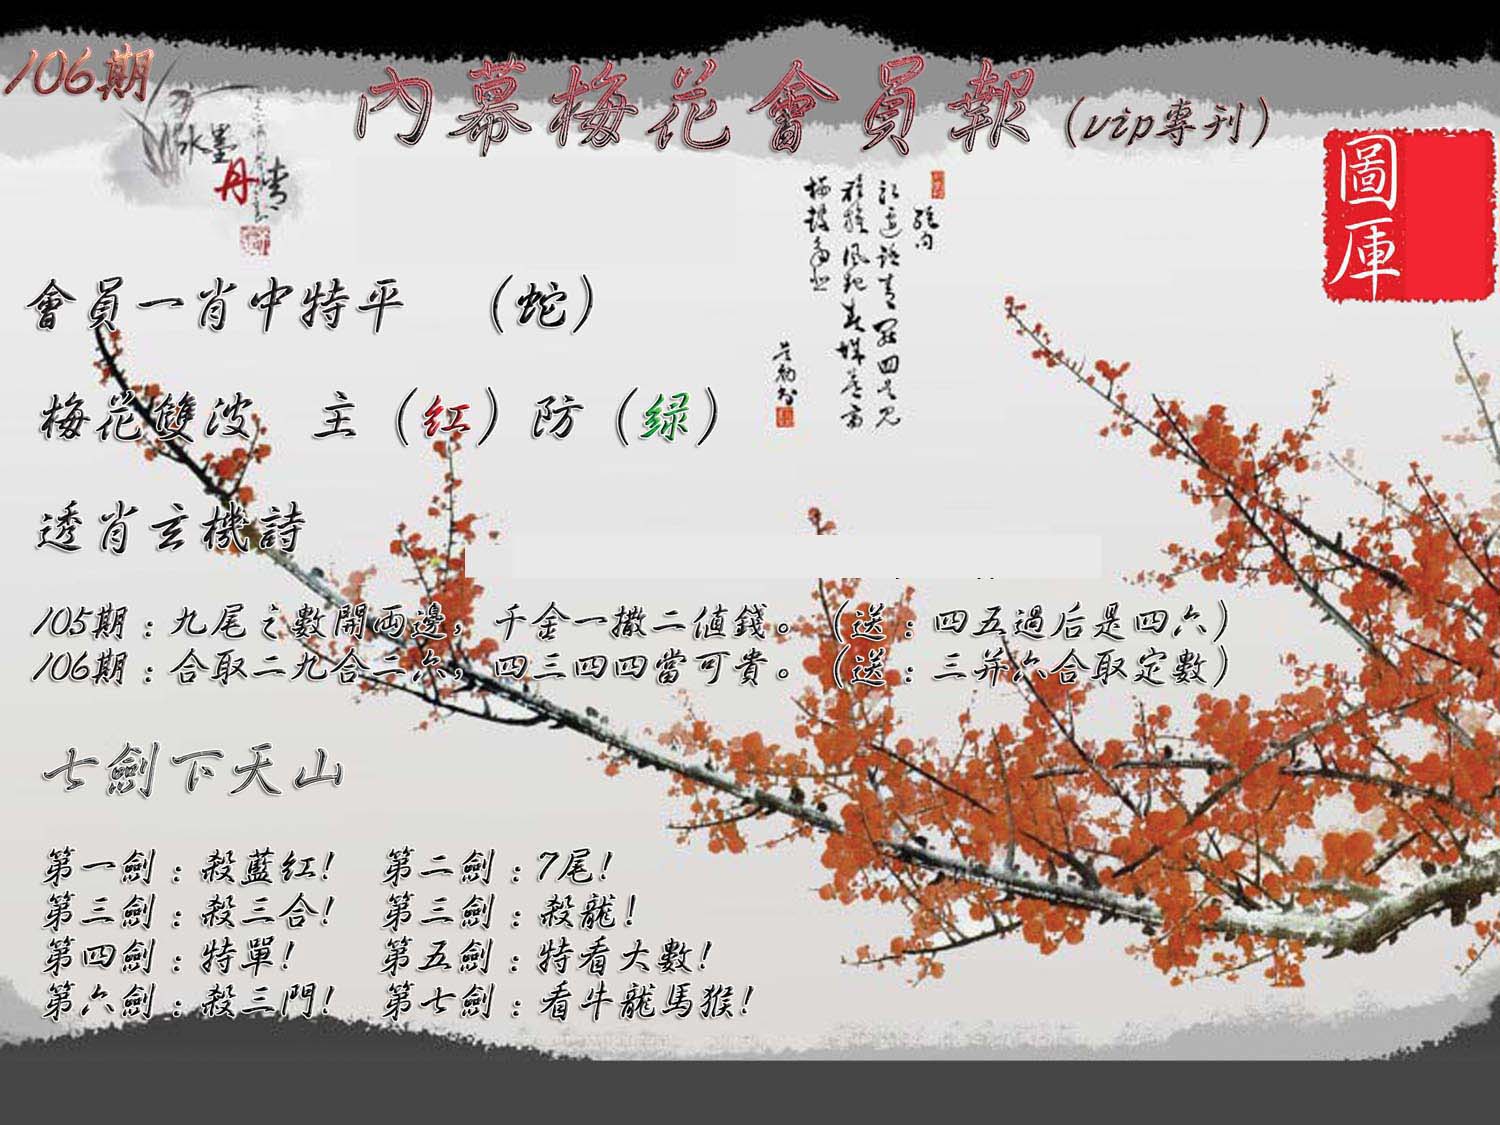 106期
內幕梅花會員報(vip專刊)
水墨
丹青
圖庫
會員一肖中特平 (蛇)
梅花雙波 主(紅)防(绿)
透肖玄機詩
105期:九尾之數開両邊,千金一撒二値錢。(送:四五過后是四六)
106期:合取二九合二六,四三四四當可貴。(送:三并六合取定數)
七劍下天山
第一劍:殺藍紅! 第二劍:7尾!
第三劍:殺三合! 第三劍:殺龍!
第四劍:特單! 第五劍:特看大數!
第六劍:殺三門! 第七劍:看牛龍馬猴!